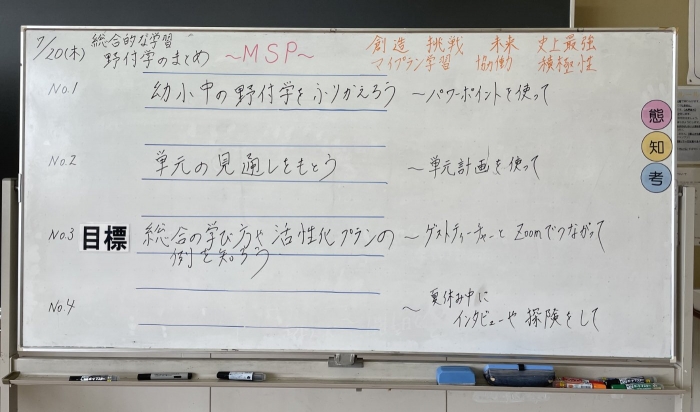 7/20(木) 総合的な学習
野付学のまとめ ～MSP～
創造 挑戦 未来 史上最強
マイプラン学習 協働 積極性
No.1 幼小中の野付学をふりかえろう ～パワーポイントを使って
No.2 単元の見通しをもとう ～単元計画を使って
No.3 目標 総合の学び方や活性化プランの ～ゲストティーチャーとZoomでつながって
例を知ろう
No.4 ～夏休み中に
インタビューや探険をして
態
知
考